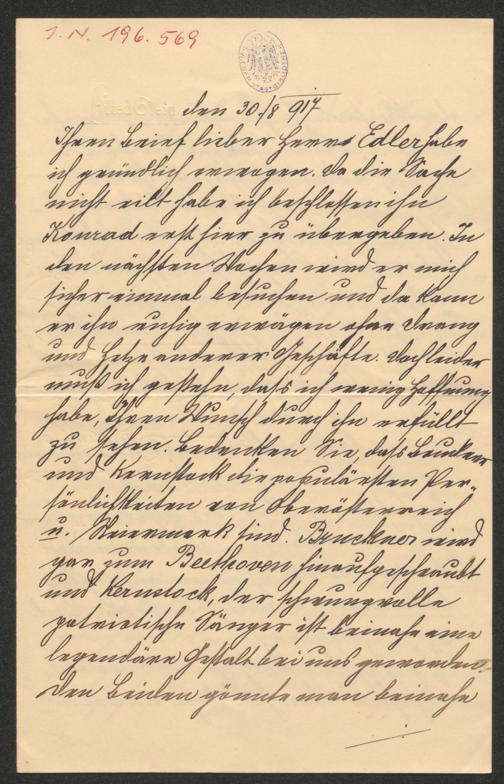 I. N. 196.569
den 30./8 917
Ihren Brief lieber Herr Edler habe
ich gründlich erwogen. Da die Sache
nicht eilt habe ich beschlossen ihn
Konrad erst hier zu übergeben. In
den nächsten Wochen wird er mich
sicher einmal besuchen und da kann
er ihn ruhig erwägen ohne Drang
und Hetze anderer Geschäfte. Doch leider
muß ich gestehn, dass ich wenig Hoffnung
habe, Ihren Wunsch durch ihn erfüllt
zu sehen. Bedenken Sie, dass Bruckner
und Kernstock die populärsten Per„
sönlichkeiten von Oberösterreich
u. Steiermark sind. Bruckner wird
gar zum Beethoven hinaufgeschraubt
und Kernstock, der schwungvolle
patriotische Sänger ist beinahe eine
legendäre Gestalt bei uns geworden.
Den Beiden gönnte man beinahe